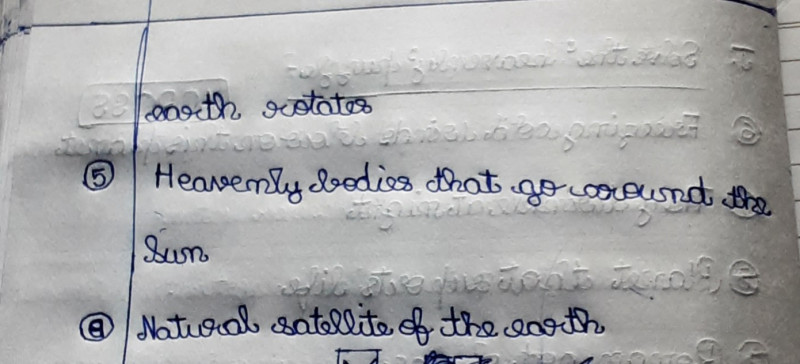 earth rotates
⑤ Heavenly bodies that go around the
Sun
⑧ Natural satellite of the earth